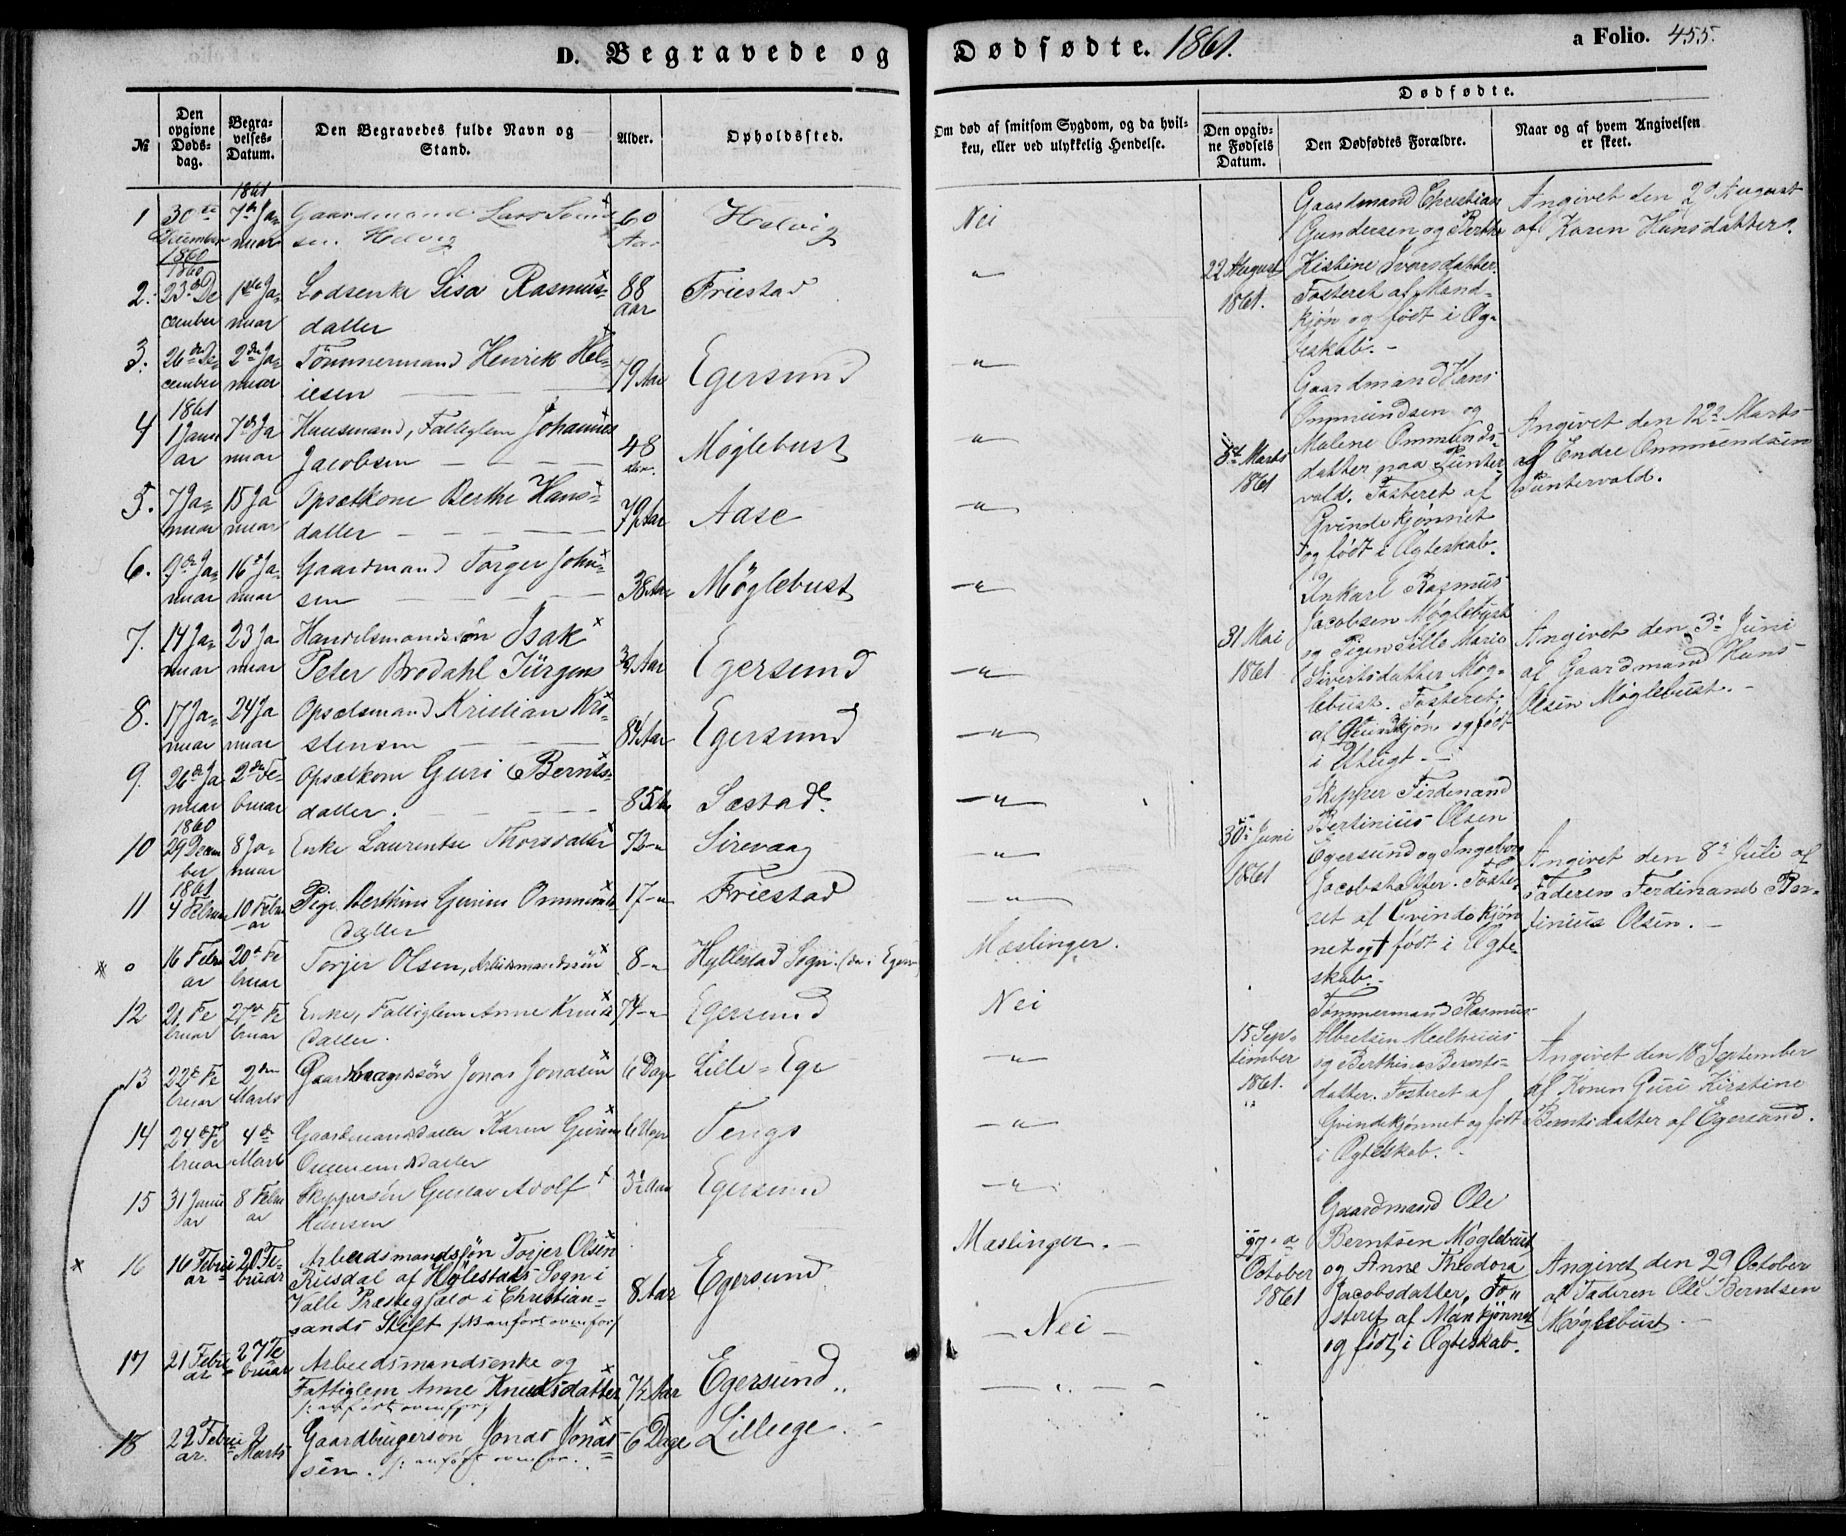 D. Begravede og Dødfødte. 1861.
a Folio. 455.
№
Den opgivne Døds-dag.
Begra-velses-Datum.
Den Begravedes fulde Navn og Stand.
Alder.
Opholdssted.
Om død af smitsom Sygdom, og da hvil-
ken, eller ved ulykkelig Hendelse.
Dødfødte.
Den opgiv-ne Fødsels Datum.
Den Dødfødtes Forældre.
Naar og af hvem Angivelsen er skeet.
1 30te December 1860 1861 7de Januar Gaardmand Lars
sen Helvig 60 Aar Helvig Nei
2. 1860 23de December 1ste Januar Lodsenke Lisa Rasmus-
datter 88 aar Friestad —"—
3. 26de December 2den Januar Tømmermand Henrik Hel-
iesen 79 Aar Egersund —"—
4 1861 1 Januar 7de Januar Huusmand, Fattiglem Johannes
Jacobsen 48 Aar Møglebust —"—
5. 7 Januar 15 Januar Opsætkone Berthe Hans-
datter 79 Aar Aase —"—
6. 9de Januar 16de Januar Gaardmand Torger John-
sen 38 Aar Møglebust —"—
7. 14 Januar 23 Januar Handelsmandssøn Isak
Peter Brodahl Jürgens Aar Egersund —"—
8. 17 Januar 24 Januar Opsætsmand Kristian Kri-
stensen 84 Aar Egersund —"—
9. 26de Januar 2den Februar Opsætkone Guri Bernts-
datter. 85 Sæstad —"—
10 1860 29 December 8 Januar Enke Laurentse Thorsdatter Sirevaag —"—
11 1861 4 Februar 10 Februar Pige Berthine Gurine Ommunds
datter 17-" Friestad —"—
o 16 Februar 20de Februar Torjer Olsen, Arbeidsmandssøn 8-" Hyllestad Sogn Mæslinger.
12 21 Februar 27de Februar Enke, Fattiglem Anne Knuds
datter. 74-" Egersund Nei
13 22de Februar 2den Marts Gaardmandssøn Jonas Jonasen 6 Dage Lille-Ege —"—
14 24de Februar 4de Marts Gaardmandsdatter Karen Gurine
Ommundsdatter 6 Uger Tengs —"—
15 31 Januar 8 Februar Skippersøn Gustav Adolf
Hansen Egersund —"—
16 16 Februar 20 Februar Arbeidsmandssøn Torjer Olsen
Riisdal af Hylestads Sogn i
Valle Præstegjæld i Christian-
sands Stift /NB anført ovenfor/ 8 Aar Egersund Mæslinger.—
17 21 Februar 27 Februar Arbeidsmandsenke og
Fattiglem Anne Knudsdatter
/: anført ovenfor/ 74 Aar Egersund — Nei —
18 22 Februar 2 Marts Gaardbrugersøn Jonas Jonas-
sen. /: anført ovenfor. 6 Dage Lilleege.
22 August 1861.
Gaardmand Christian
Gundersen og Berthe
Kistine Ivarsdatter.
Fosteret af Mand-
kjøn og født i Æg-
teskab.—
Angivet den 29 August
af Karen Hansdatter.
8de Marts 1861
Gaardmand Hans
Ommundsen og
Malene Ommunds-
datter paa Puntervold. Fosteret af
Qvindekjønnet
og født i Ægteskab.
Angivet den 12te Marts
af Endre Ommundsen
Puntervold.
31 Mai 1861
Ungkarl Rasmus
Jacobsen Møglebust
og Pigen Sille Marie
Sivertsdatter Møg-
lebust. Fosteret
af Qvindkjøn og født
i Utugt.—
Angivet den 3. Juni
af Gaardmand Hans
Olsen Møglebust.—
30 Juni 1861
Skipper Ferdinand
Bertinius Olsen
Egersund og Ingeborg
Jacobsdatter. Foste-
ret af Qvindekjøn
net og født i Ægte-
skab.—
Angivet den 8de Juli af
Faderen Ferdinand Ber-
tinius Olsen.—
15 September 1861.
Tømmermand Rasmus
Albretsen Meelhuus
og Berthine Bernts-
datter. Fosteret af
Qvindekjønnet og født
i Ægteskab.
Angivet den 18 September
af Konen Guri Kirstine
Berntsdatter af Egersund.
27 October 1861
Gaardmand Ole
Berntsen Møglebust
og Anne Theodora
Jacobsdatter, Fo-
steret af Mankjønnet
og født i Ægteskab.
Angivet den 29 October
af Faderen Ole Berntsen
Møglebust.—